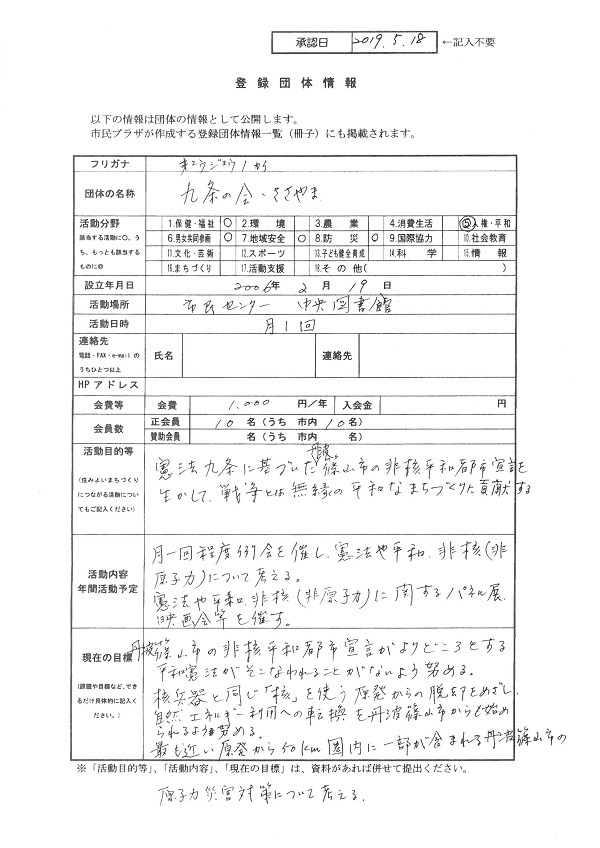 承認日 2019.5.18 ←記入不要
登録団体情報
以下の情報は団体の情報として公開します。
市民プラザが作成する登録団体情報一覧（冊子）にも掲載されます。
フリガナ キュウジョウノカイ
団体の名称 九条の会・ささやま
活動分野
該当する活動に○。うち、もっとも該当するものに◎
1.保健・福祉 ○ 2.環境 3.農業 4.消費生活 ⑤人権・平和
6.男女共同参画 7.地域安全 ○ 8.防災 ○ 9.国際協力 10.社会教育
11.文化・芸術 12.スポーツ 13.子ども健全育成 14.科学 15.情報
16.まちづくり 17.活動支援 18.その他( )
設立年月日 2006年 2月 19日
活動場所 市民センター 中央図書館
活動日時 月1回
連絡先
電話・FAX・e-mailのうちひとつ以上
氏名 連絡先
HPアドレス
会費等 会費 1,000 円/年 入会金 円
会員数 正会員 10名（うち 市内 10名）
賛助会員 名（うち 市内 名）
活動目的等
（住みよいまちづくりにつながる活動についてもご記入ください）
憲法九条に基づいた丹波篠山市の非核平和都市宣言を
生かして、戦争とは無縁の平和なまちづくりに貢献する
活動内容
年間活動予定
月一回程度例会を催し、憲法や平和、非核(非
原子力)について考える。
憲法や平和、非核(非原子力)に関するパネル展、
映画会等を催す。
現在の目標
（課題や目標など、できるだけ具体的に記入ください。）
丹波篠山市の非核平和都市宣言がよりどころとする
平和憲法がそこなわれることがないよう努める。
核兵器と同じ「核」を使う原発からの脱却をめざし、
自然エネルギー利用への転換を丹波篠山市からも始め
られるよう努める。
最も近い原発から50km圏内に一部が含まれる丹波篠山市の
※「活動目的等」、「活動内容」、「現在の目標」は、資料があれば併せて提出ください。
原子力災害対策について考える。